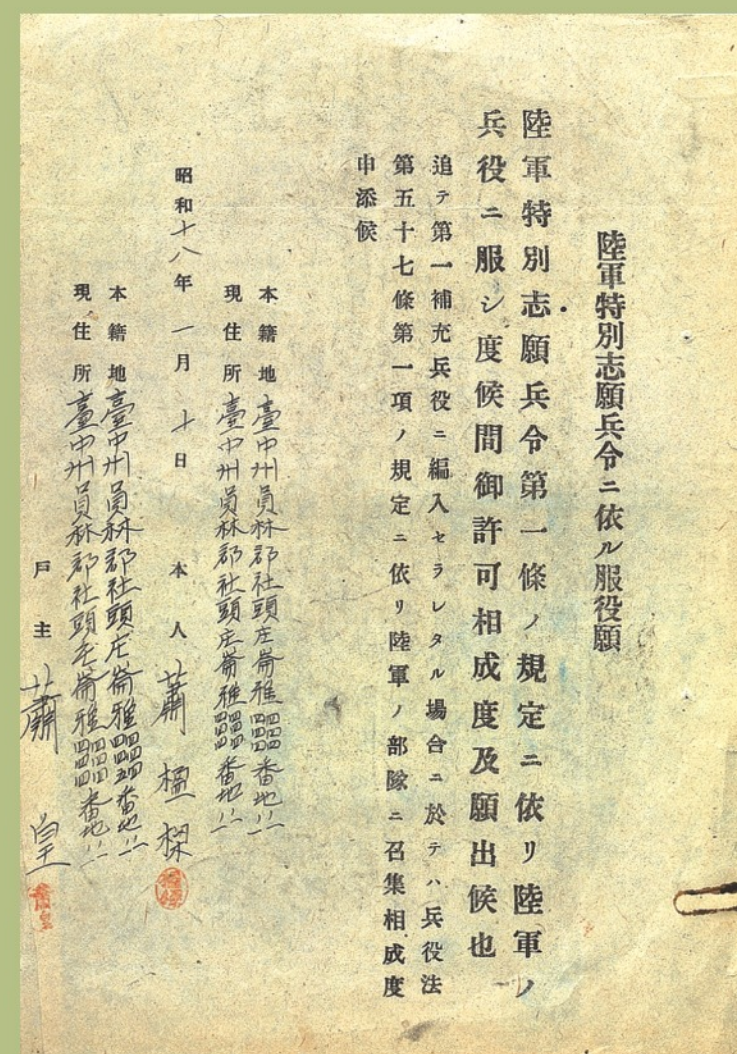 陸軍特別志願兵令ニ依ル服役願
陸軍特別志願兵令第一條ノ規定ニ依リ陸軍ノ
兵役ニ服シ度候間御許可相成度及願出候也
追テ第一補充兵役ニ編入セラレタル場合ニ於テハ兵役法
第五十七條第一項ノ規定ニ依リ陸軍ノ部隊ニ召集相成度
申添候
本籍地 臺中州員林郡社頭庄崙雅 番地
現住所 臺中州員林郡社頭庄崙雅 番地
昭和十八年一月十日 本人 蕭
本籍地 臺中州員林郡社頭庄崙雅 番地
現住所 臺中州員林郡社頭庄崙雅 番地
戶主 蕭皇